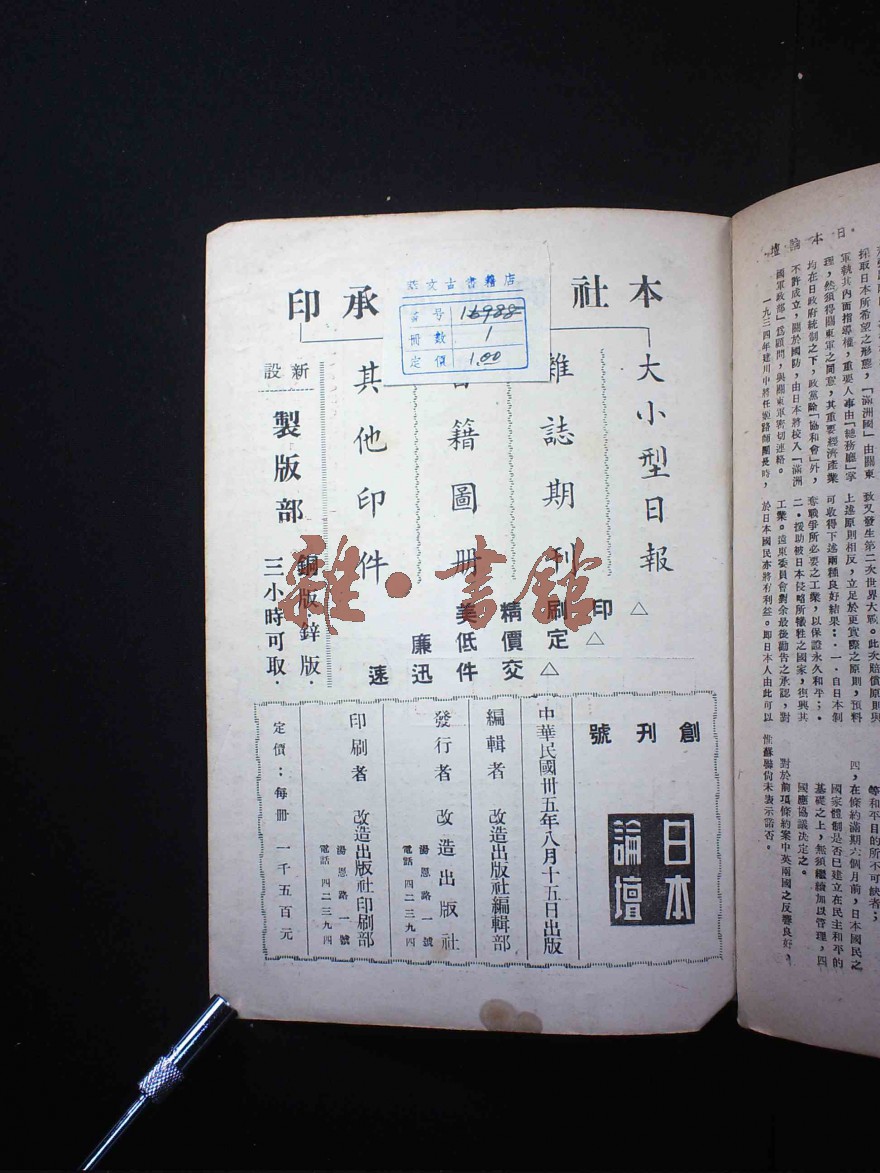 本社承印
大小型日報
雜誌期刊
籍圖冊
其他印件
△印刷精美
△定價低廉
△交件迅速
新設
製版部
銅版鋅版．
三小時可取．
文古書籍店
番号 16988
冊數 1
定價 1.00
雜·書館
創刊號
日本
論壇
中華民國卅五年八月十五日出版
編輯者 改造出版社編輯部
發行者 改造出版社
湯恩路一號
電話 四二三九四
印刷者 改造出版社印刷部
湯恩路一號
電話 四二三九四
定價：每冊 一千五百元
日本論壇
採取日本所希望之形態，「滿洲國」由關東
軍執其內面指導權，重要人事由「總務廳」掌
理，然須得關東軍之同意，其重要經濟產業
均在日政府統制之下，政黨除「協和會」外，
不許成立，關於國防，由日本將校入「滿洲
國軍政部」爲顧問，與關東軍密切連絡。
一九三四年建川中將任旅路師團長時，
致又發生第二次世界大戰。此次賠償原則與
上述原則相反，立足於更實際之原則，預料
可收得下述兩種良好結果：．一．自日本制
奪戰爭所必要之工業，以保證永久和平；．
二．援助被日本侵略所犧牲之國家，復興其
工業。遠東委員會對余最後勸告之承認，對
於日本國民亦將有利益。卽日本人由此可以
等和平目的所不可缺者；
四，在條約滿期六個月前，日本國民之
國家體制是否已建立在民主和平的
基礎之上，無須繼續加以管理，四
國應協議決定之。
對於前項條約案中英兩國之反響良好，
惟蘇聯尙未表示諾否。